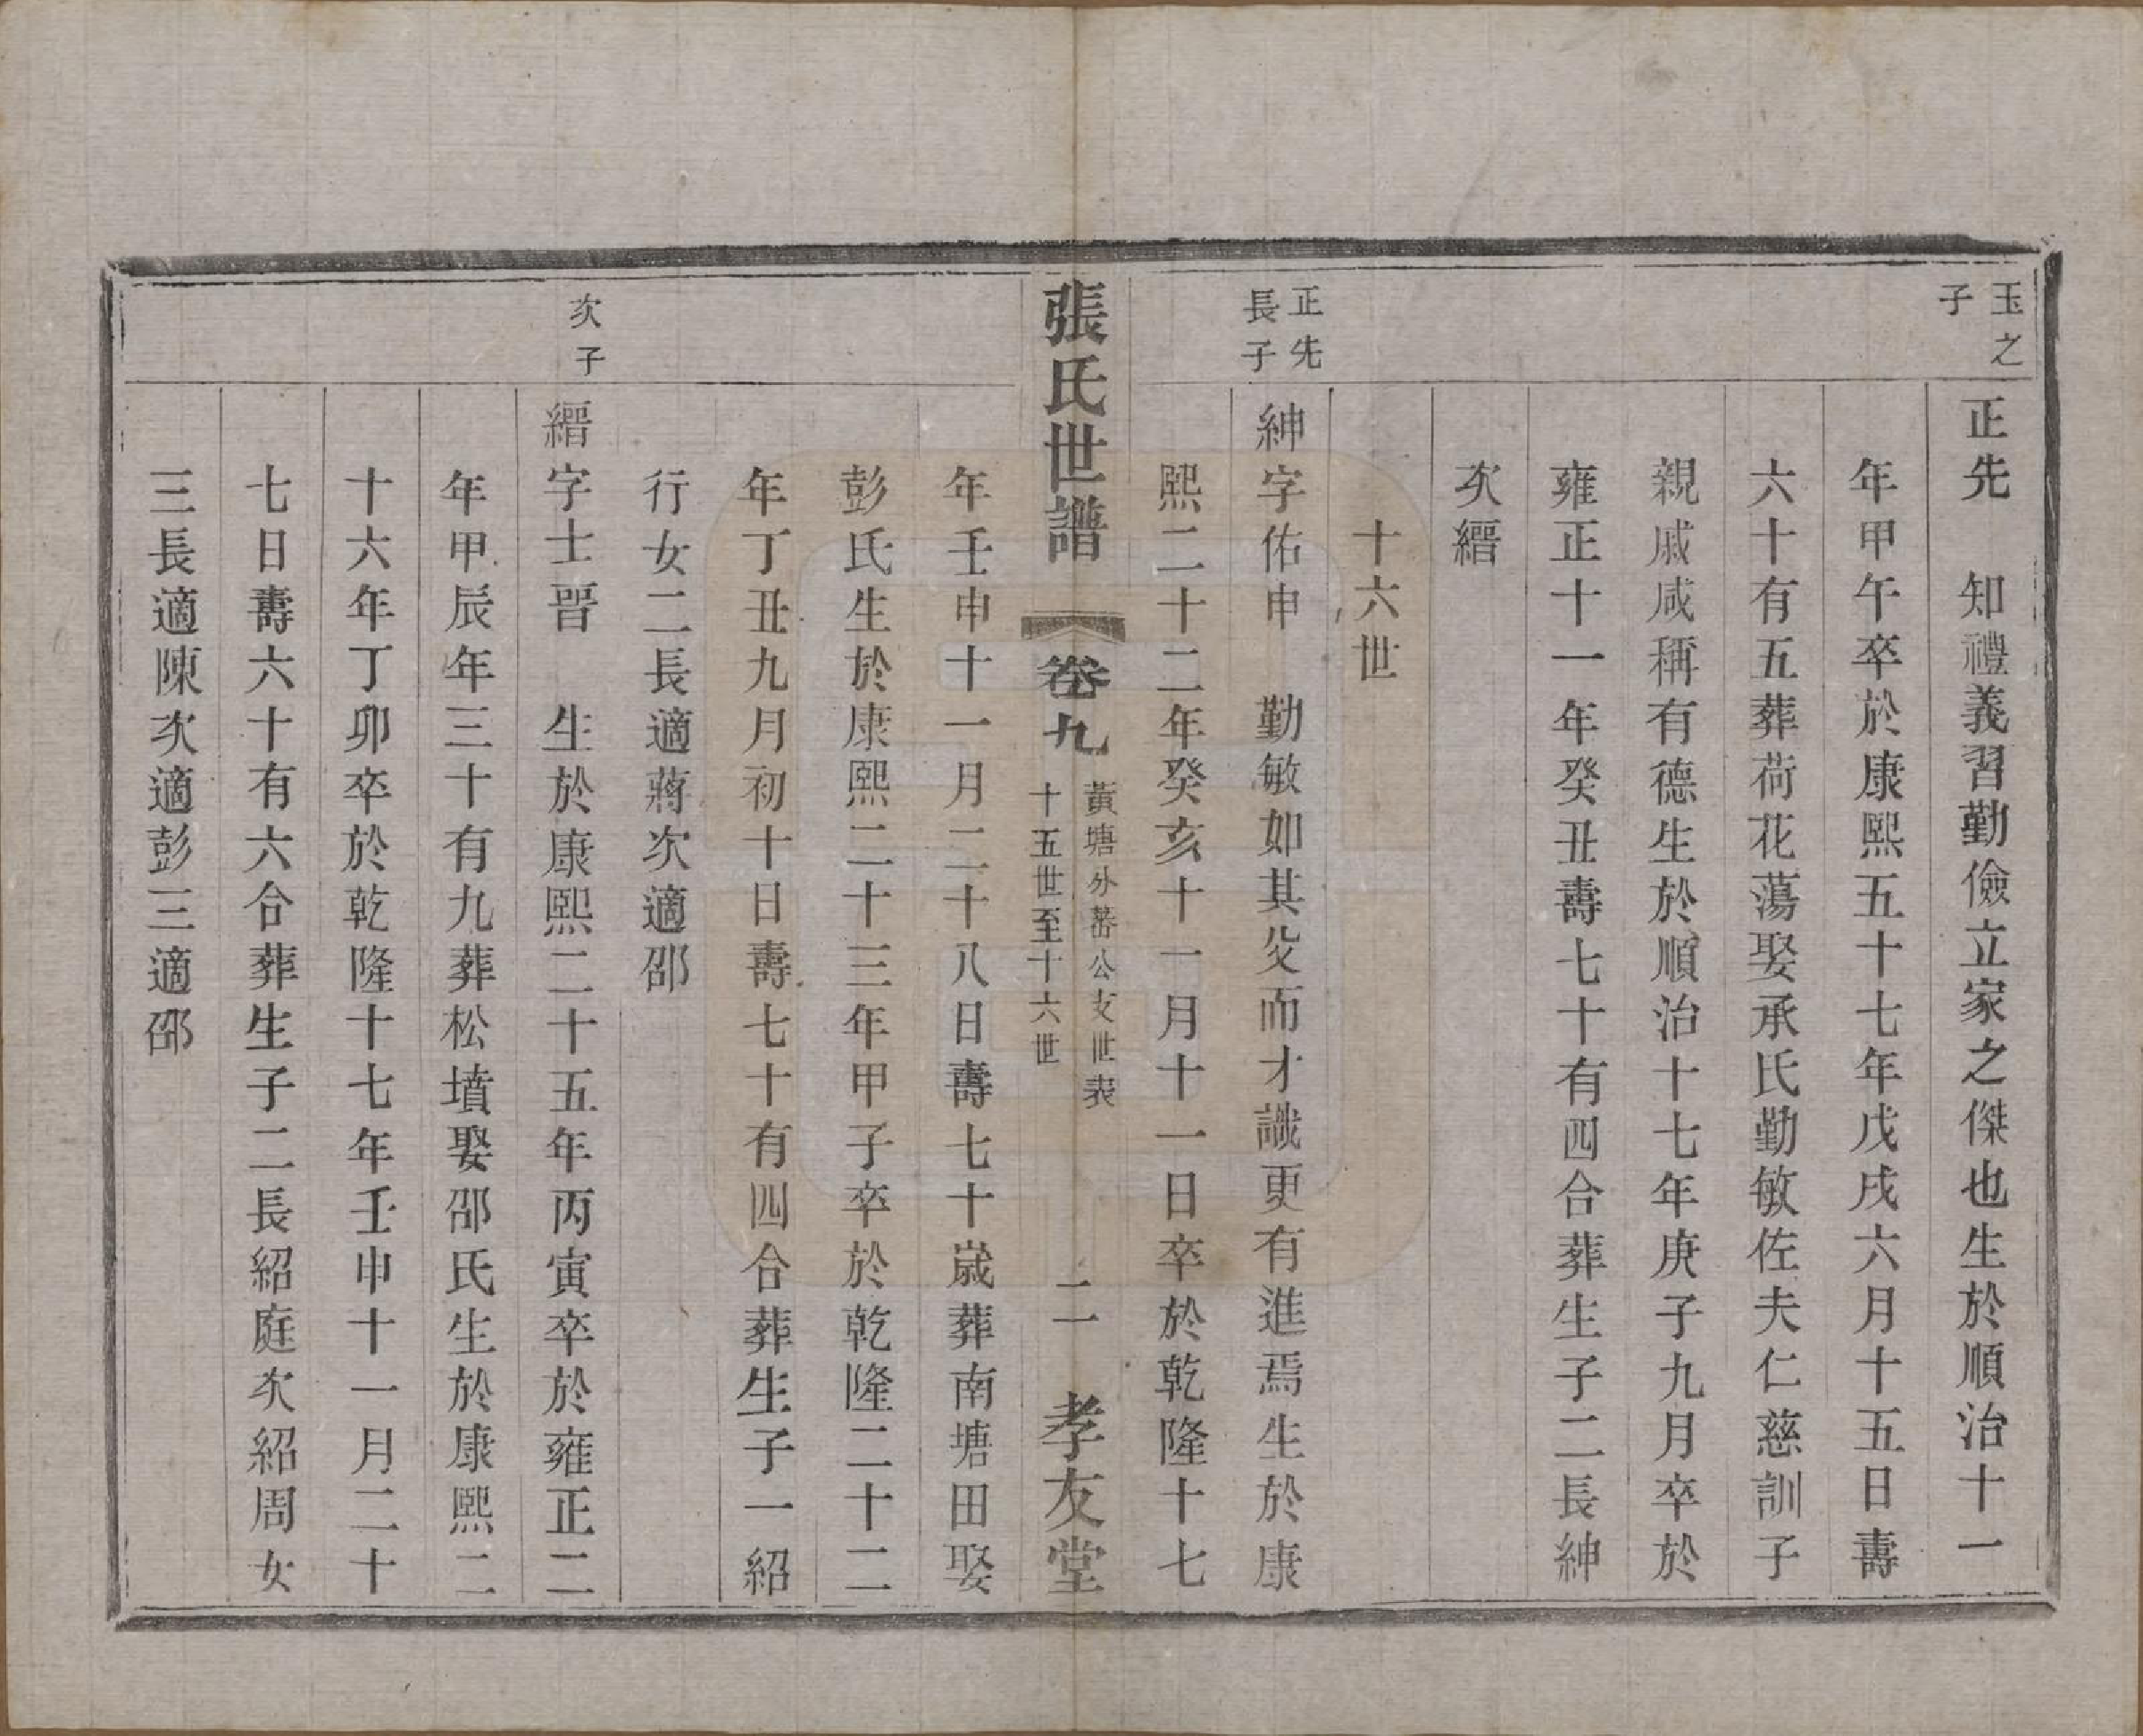 玉之
子
正先　知禮義習勤儉立家之傑也生於順治十一
年甲午卒於康熙五十七年戊戌六月十五日壽
六十有五葬荷花蕩娶承氏勤敏佐夫仁慈訓子
親戚咸稱有德生於順治十七年庚子九月卒於
雍正十一年癸丑壽七十有四合葬生子二長紳
次縉
十六世
正先
長子
紳字佑申　勤敏如其父而才識更有進焉生於康
熙二十二年癸亥十一月十一日卒於乾隆十七
張氏世譜
卷九
黃塘外蕃公支世表
十五世至十六世
二
孝友堂
年壬申十一月二十八日壽七十歲葬南塘田娶
彭氏生於康熙二十三年甲子卒於乾隆二十二
年丁丑九月初十日壽七十有四合葬生子一紹
行女二長適蔣次適邵
次子
縉字士晉　生於康熙二十五年丙寅卒於雍正二
年甲辰年三十有九葬松墳娶邵氏生於康熙二
十六年丁卯卒於乾隆十七年壬申十一月二十
七日壽六十有六合葬生子二長紹庭次紹周女
三長適陳次適彭三適邵